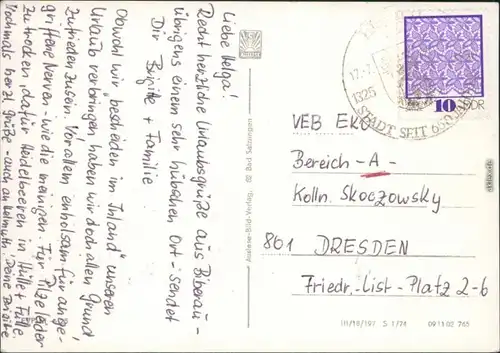 Liebe Helga!
Recht herzliche Urlaubsgrüße aus Bibrau -
übrigens einem sehr hübschen Ort - sendet
Dir Brigitte + Familie
Obwohl wir "bescheiden im Inland" unseren
Urlaub verbringen haben wir doch allen Grund
zufrieden zu sein. Vor allem erholsam für ange-
griffene Nerven - wie die meinigen. Für Pilze leider
zu trocken, dafür Heidelbeeren in Hülle + Fülle.
Nochmals herzl. Grüße - auch an Helmuth, Deine Brigitte
Auslese-Bild-Verlag, 62 Bad Salzungen
17.7.
1325
STADT SEIT 650
10 DDR
VEB EKO
Bereich - A -
Kolln. Skoczowsky
801 DRESDEN
Friedr.-List-Platz 2-6
III/18/197 S 1/74 09 11 02 765